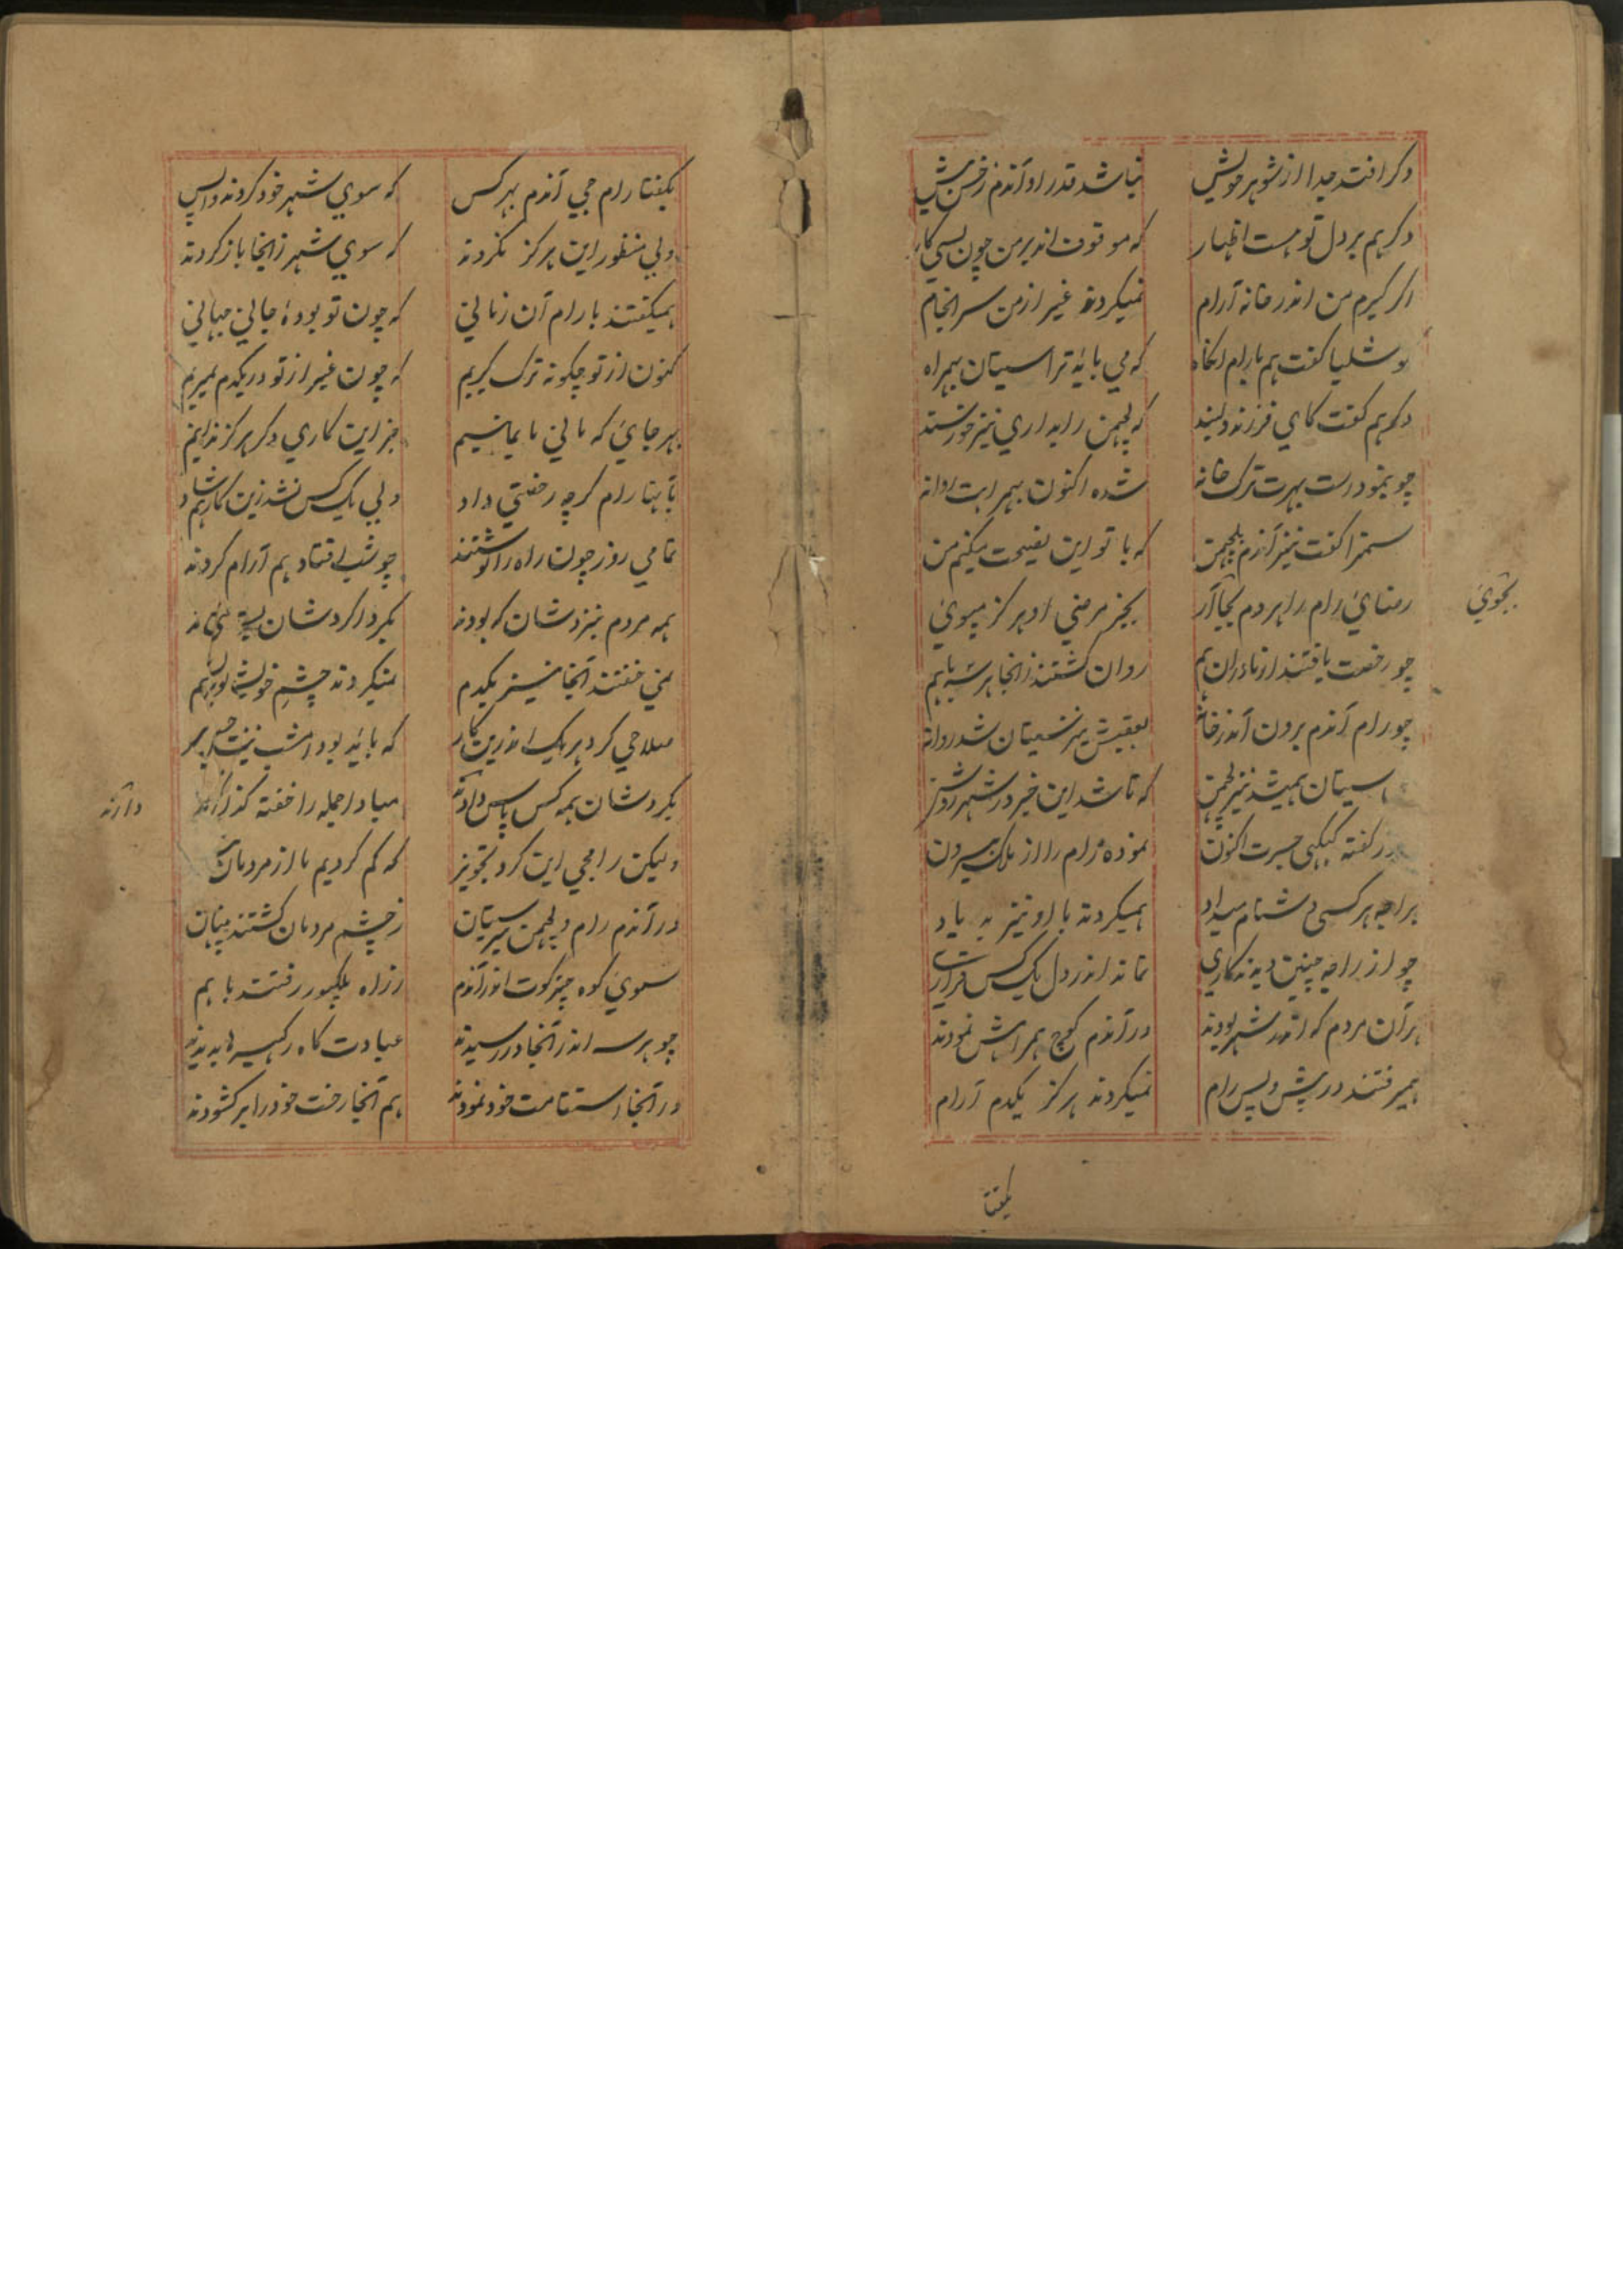 دکر افتد جدا از شوهر خویش نباشد قدر او آندم زخس بیش
دکر هم بر دل تو هست اظهار که موقوف اند بر من چون بسی کار
اکر کیرم من اندر خانه آرام نمیکردند غیر از من سرانجام
کوشلیا کفت هم با رام انکاه که می بائد ترا سیتان بهمراه
دکر هم کفت کای فرزند دلبند که لچمن را بداری نیز خورسند
چو بنمود است بهرت ترک خانه شده اکنون بهمرا ات روانه
سمترا کفت نیز آندم بلچمن که با تو این نصیحت میکنم من
رضای رام را هر دم بجا آر بجز مرضی او هرکز مپوی
بجوی
چو رخصت یافتند از مادران هم روان کشتند زانجا هر سه باهم
چو رام آندم برون آمد ز خانه بعقبش نیز سیتان شد روانه
سیتان همیشد نیز لچمن که تا شد این خبر در شهر روشن
ز کفته کیکهی جسرت اکنون نموده رام را از ملک بیرون
براجه هر کسی دشنام میداد همیکردند با او نیز به یاد
چو از راجه چنین دیدند کاری نماند اندر دل یک کس قراری
هر آن مردم که اندر شهر بودند در آندم کوچ همراهش نمودند
همیرفتند در پیش و پس رام نمیکردند هرکز یکدم آرام
بکفتا
بکفتا رام جی آندم بهر کس که سوی شهر خود کردند واپس
ولی منظور این هرکز نکردند که سوی شهر زانجا باز کردند
همیکفتند با رام آن زمانی که چون تو بودهٔ جانی جهانی
کنون از تو چکونه ترک کیریم که چون غیر از تو در یکدم بمیریم
بهر جای که مانی ما بمانیم جز این کاری دکر هرکز ندانیم
بآنها رام کرچه رخصتی داد ولی یک کس نشد زین کار هم شاد
تمامی روز چون راه را نوشتند چو شب افتاد هم آرام کردند
همه مردم بنزدشان که بودند بکرداکردشان
نمی خفتند آنجا نیز یکدم نمیکردند چشم خویش بر هم
صلاحی کرد هر یک اندرین کار که بائد بود امشب نیز
بکردشان همه کس پاس دادند مبادا جمله را خفته کذارند
دارند
ولیکن رامجی این کرد تجویز که کم کردیم ما از مردمان
در آندم رام و لچمن نیز سیتان ز چشم مردمان کشتند پنهان
سوی کوه چترکوت اندر آندم ز راه بلکپور رفتند باهم
چو هر سه اندر آنجا در رسیدند عبادت کاه رکهیسرها بدیدند
در آنجا استقامت خود نمودند هم آنجا رخت خود را بر کشودند